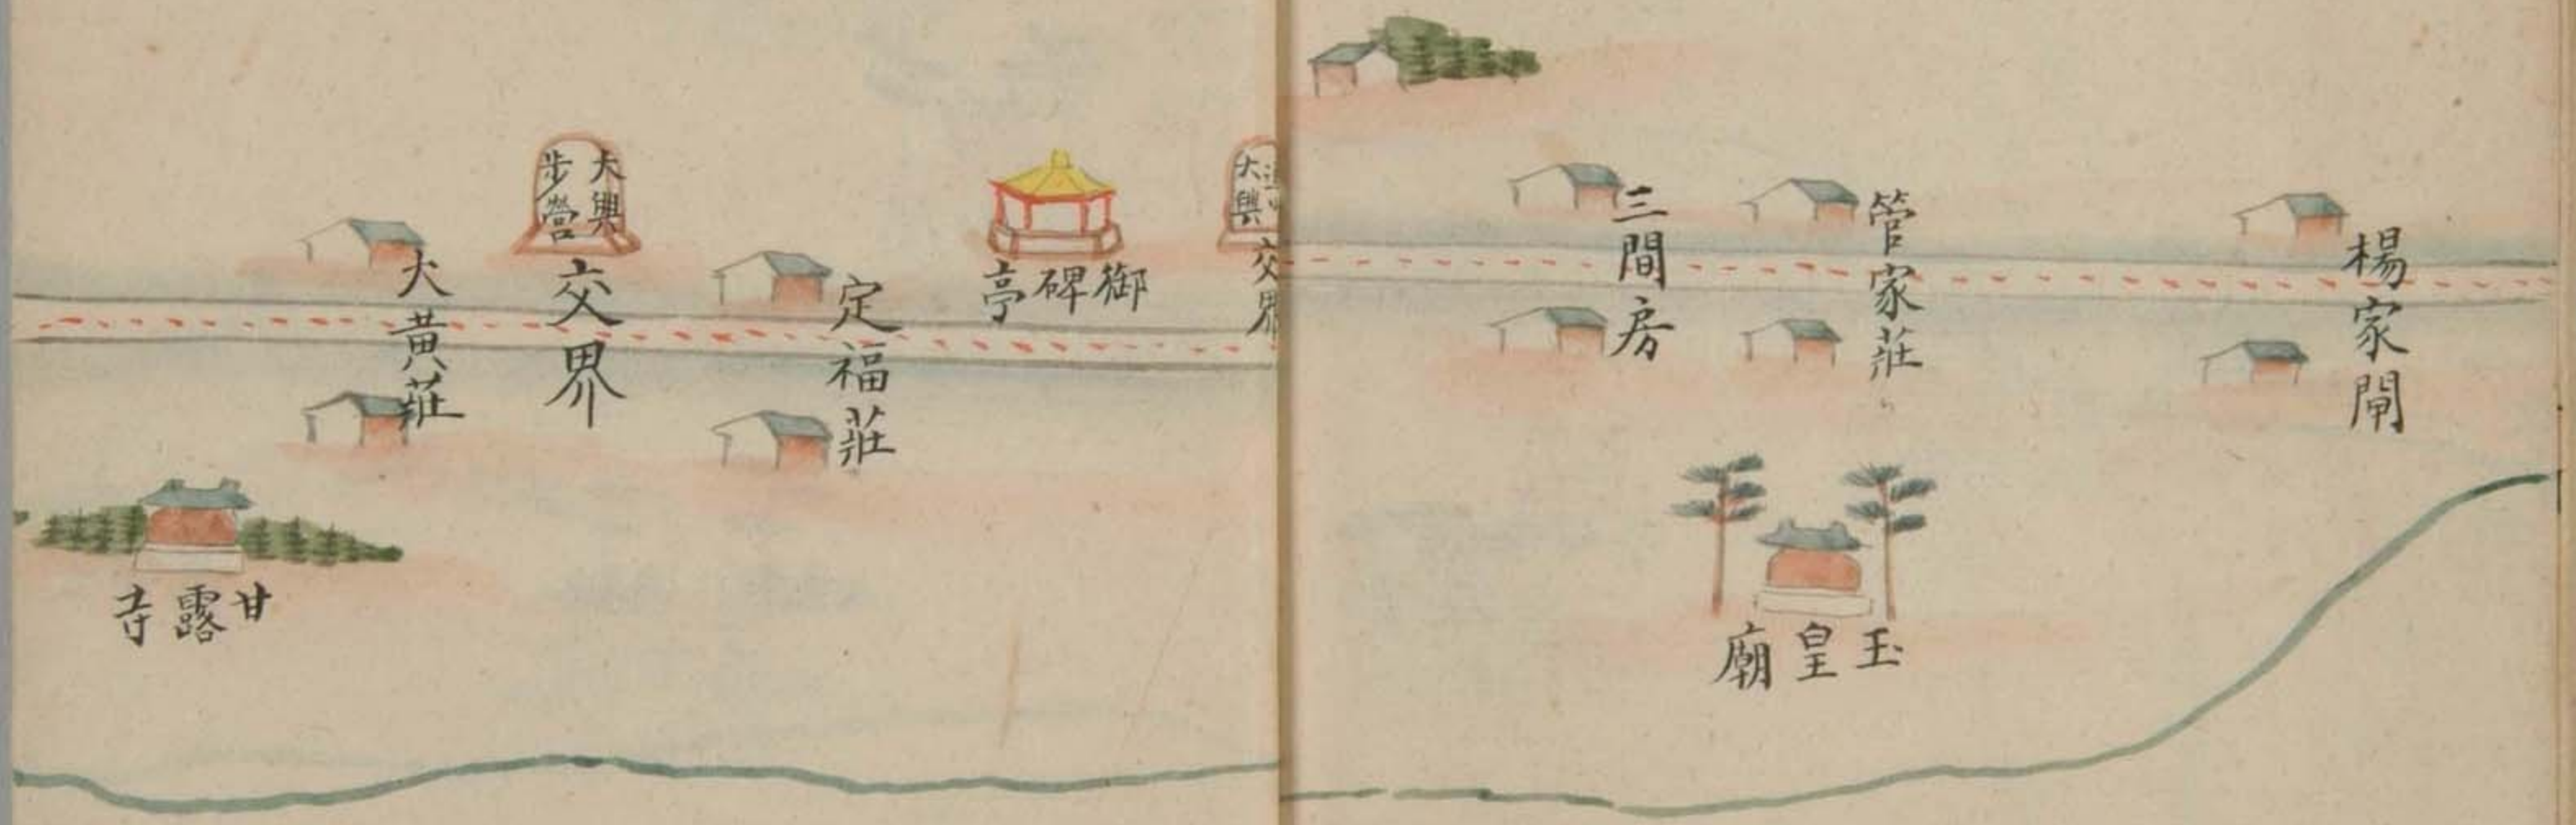 楊家閘
管家莊
三間房
玉皇廟
大興
交界
御碑亭
定福莊
大興
步營
交界
大黃莊
甘露寺